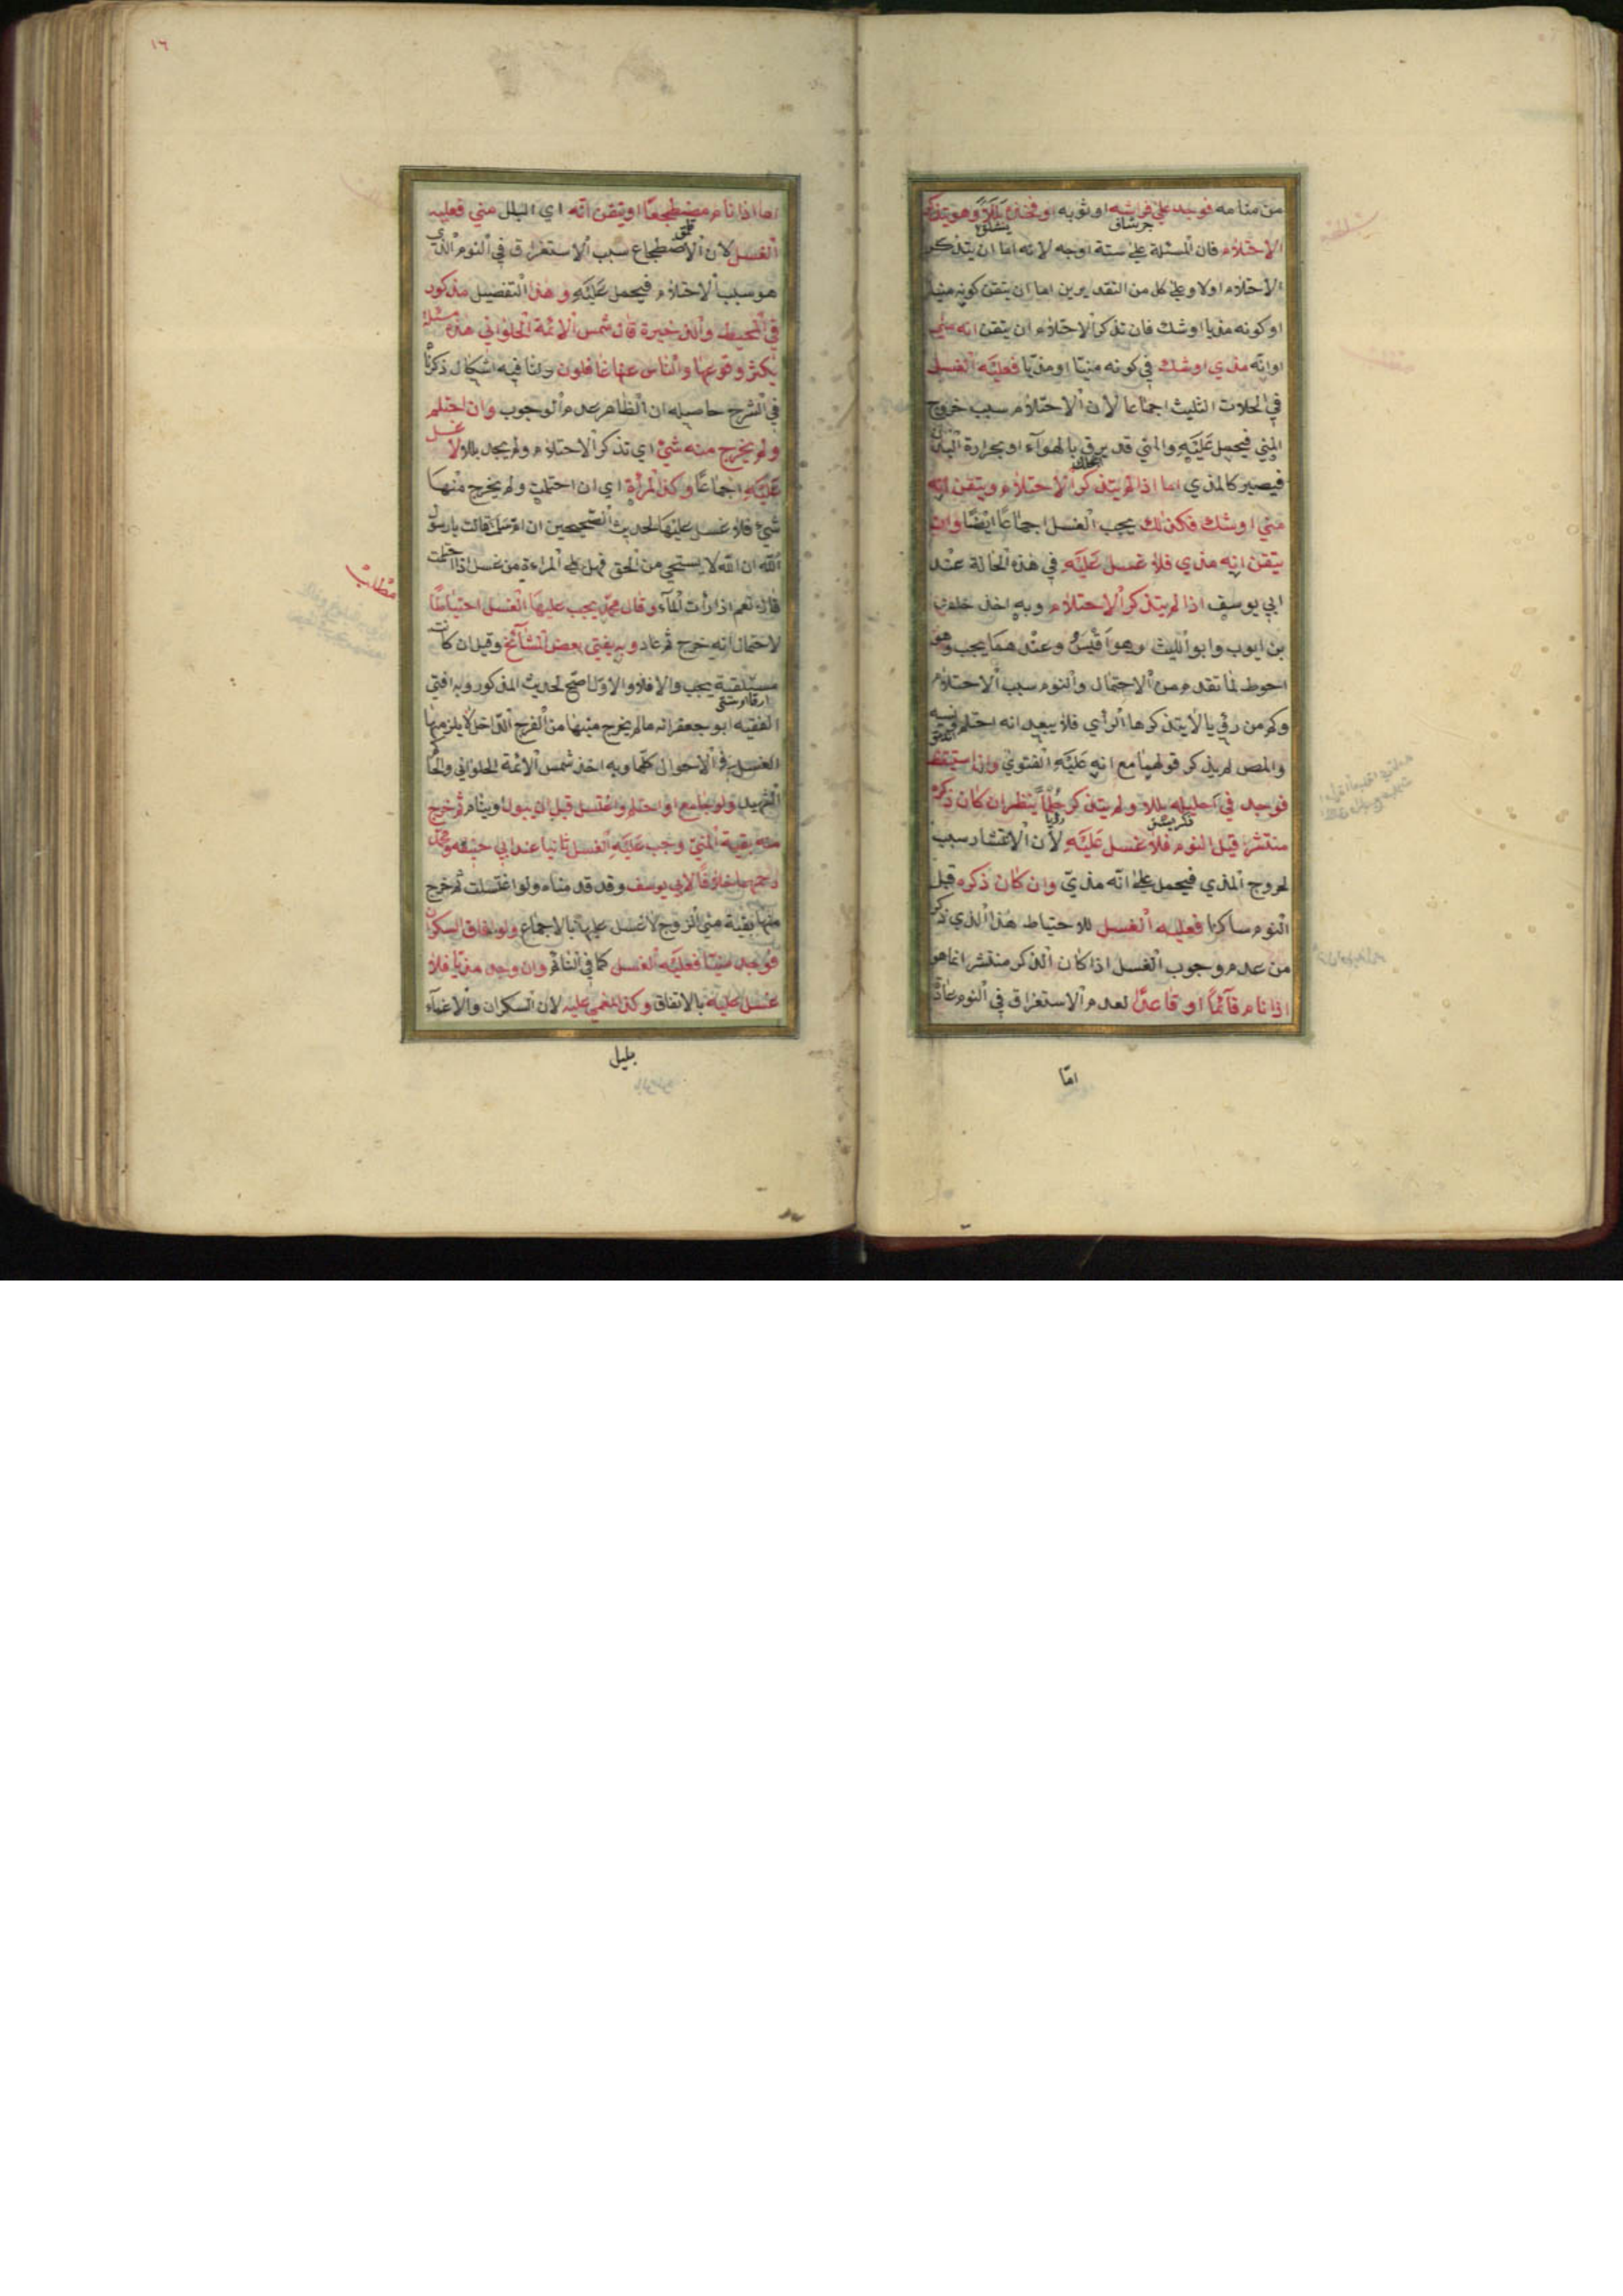 من منامه فوجد على فراشه او ثوبه او فخذه بللا وهو يتذكر
الاحتلام فان المسئلة على ستة اوجه لانه اما ان يتذكر
الاحتلام اولا وعلى كل من التقديرين اما ان يتقن كونه منيا
او كونه مذيا او شك فان تذكر الاحتلام ان يتقن انه مني
او انه مذي او شك في كونه منيا او مذيا فعليه الغسل
في الحلات الثلث اجماعا لان الاحتلام سبب خروج
المني فيحمل عليه والمني قد يرق بالهوآء او بحرارة البدن
فيصير كالمذي اما اذا لم يتذكر الاحتلام ويتقن انه
مني او شك فكذلك يجب الغسل اجماعا ايضا وان
تيقن انه مذي فلا غسل عليه في هذه الحالة عند
ابي يوسف اذا لم يتذكر الاحتلام وبه اخذ خلف
بن ايوب وابو الليث وهو اقيس وعندهما يجب وهو
احوط لما تقدم من الاحتمال والنوم سبب الاحتلام
وكم من رؤيا لا يتذكرها الرأي فلا يبعد انه احتلم
والمص لم يذكر قولهما مع انه عليه الفتوي واذا ستيقظ
فوجد في احليله بللا ولم يتذكر حلما ينظر ان كان ذكره
منتشرا قبل النوم فلا غسل عليه لان الانتشار سبب
لخروج المذي فيحمل على انه مذي وان كان ذكره قبل
النوم ساكنا فعليه الغسل للاحتياط هذا الذي ذكر
من عدم وجوب الغسل اذا كان الذكر منتشر انما هو
اذا نام قآئما او قاعدا لعدم الاستغراق في النوم عادة
امّا
١٦
اما اذا نام مضطجعا او تيقن انه اي البلل مني فعليه
الغسل لان الاضطجاع سبب الاستغراق في النوم الذي
هو سبب الاحتلام فيحمل عليه وهذا التفصيل مذكور
في المحيط والذخيرة قال شمس الائمة الحلواني هذه مسئلة
يكثر وقوعها والناس عنها غافلون ولنا فيه اشكال ذكرنا
في الشرح حاصله ان الظاهر عدم الوجوب وان احتلم
ولم يخرج منه شئ اي تذكر الاحتلام ولم يجد بللا لا غسل
عليه اجماعا وكذا المرأة اي ان احتلمت ولم يخرج منها
شئ فلا غسل عليها لحديث الصحيحين ان ام سلمة قالت يا رسول
الله ان الله لا يستحي من الحق فهل على المراءة من غسل اذا احتلمت
قال نعم اذا رأت المآء وقال محمد يجب عليها الغسل احتياطا
لاحتمال انه خرج ثم عاد وبه يفتي بعض المشآئخ وقيل ان كانت
مستلقية يجب والا فلا والاول اصح لحديث المذكور وبه افتى
الفقيه ابو جعفر انه ما لم يخرج منها من الفرج الداخل لا يلزمها
الغسل في الاحوال كلها وبه اخذ شمس الائمة الحلواني والحاكم
الشهيد ولو جامع او احتلم واغتسل قبل ان يبول او ينام ثم خرج
منه بقية المني وجب عليه الغسل ثانيا عند ابي حنيفه ومحمد
رحمهما خلافا لابي يوسف وقد قدمناه ولو اغتسلت ثم خرج
منها بقية مني الزوج لا غسل عليها بالاجماع ولو افاق السكران
فوجد منيا فعليه الغسل كما في النائم وان وجد مذيا فلا
غسل عليه بالاتفاق وكذا المغمي عليه لان السكران والاغمآء
مطلب